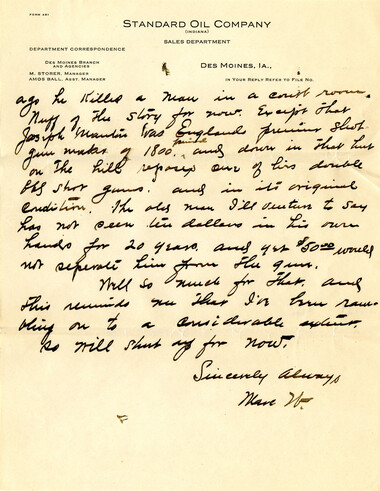 FORM 481
STANDARD OIL COMPANY
(INDIANA)
SALES DEPARTMENT
DEPARTMENT CORRESPONDENCE
DES MOINES BRANCH
AND AGENCIES
M. STORER, MANAGER
AMOS BALL, ASST. MANAGER
DES MOINES, IA.,
IN YOUR REPLY REFER TO FILE NO.
ago he killed a man in a court room.
Nuff of the story for now. Except that
Joseph Manton was Englands premier shot
gun maker of 1800. and down in that hut
on the hill reposes one of his double
bbl shot guns. and in its original
condition. The old man I'll venture to say
has not seen ten dollars in his own
hands for 20 years. and yet $50.00 would
not seperate him from the gun.
Well so much for that. and
this reminds me that I've been ram-
bling on to a considerable extent.
so will shut up for now.
Sincerely Always